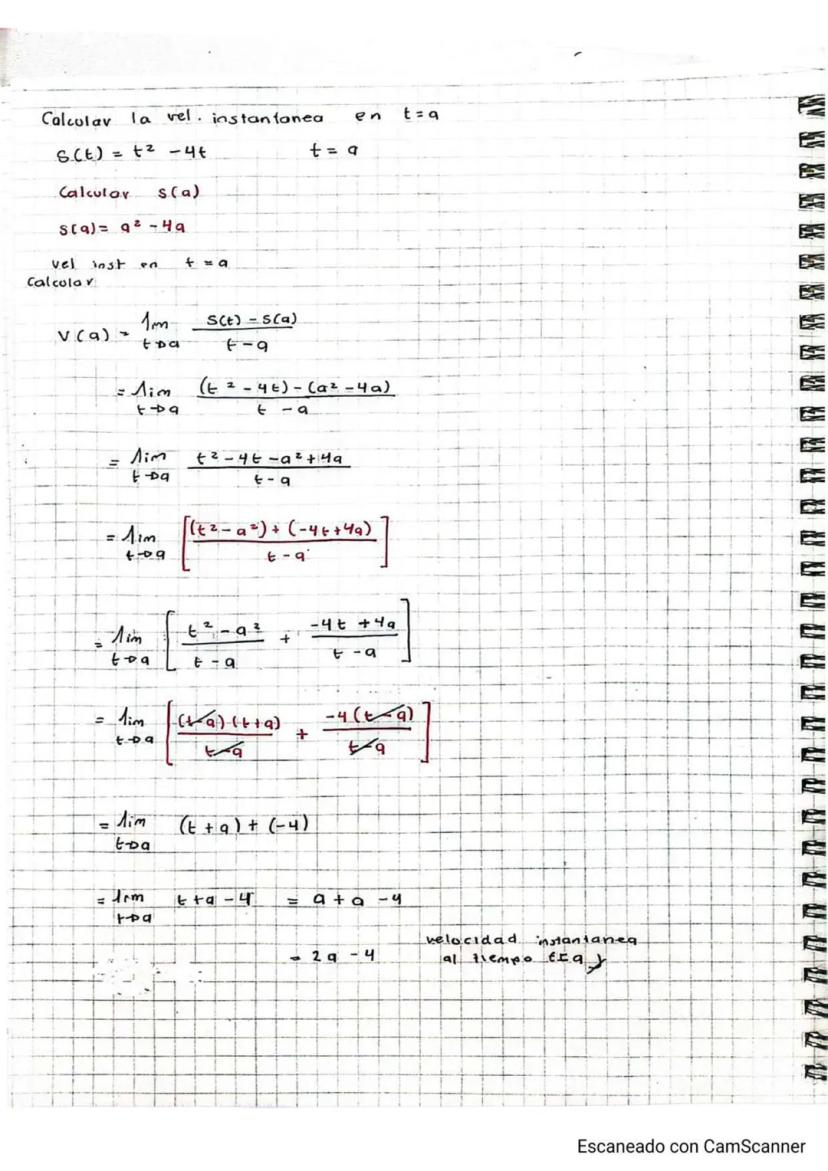 Calcular la vel. instantanea en t=a
S(t) = t² -4t t = a
Calcular s(a)
s(a)= a² -4a
vel inst en t = a
Calcular
V(a) = lim t→a S(t) - S(a) / t-a
= lim t→a (t² - 4t) - (a² - 4a) / t - a
= lim t→a t² - 4t - a² + 4a / t - a
= lim t→a [(t² - a²) + (-4t + 4a) / t - a]
= lim t→a [t² - a² / t - a + -4t + 4a / t - a]
= lim t→a [(t-a)(t+a) / t-a + -4(t-a) / t-a]
= lim t→a (t + a) + (-4)
= lim t→a t + a - 4 = a + a - 4
= 2a - 4 velocidad instantanea
al tiempo t=a
Escaneado con CamScanner